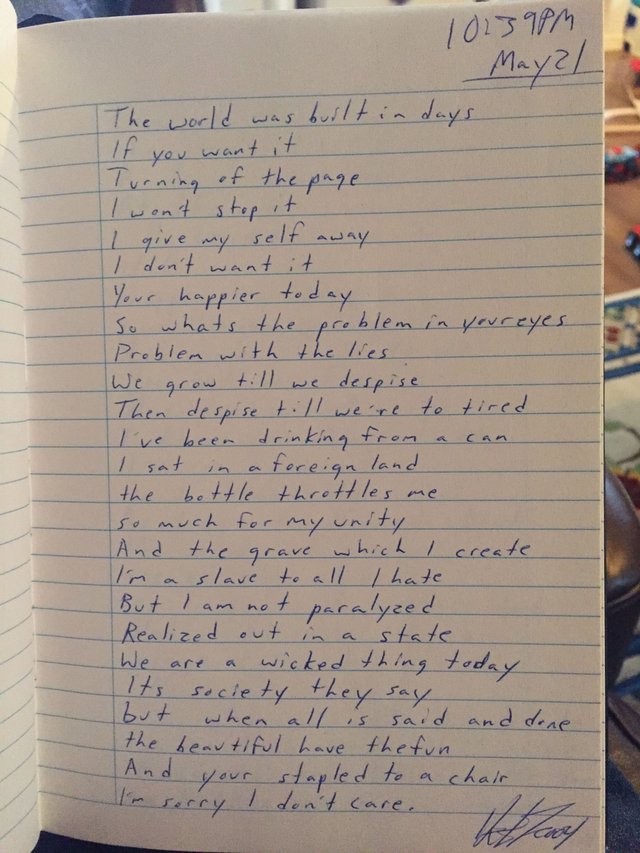 10:39PM
May 21
The world was built in days
If you want it
Turning of the page
I wont stop it
I give my self away
I don't want it
Your happier today
So whats the problem in your eyes
Problem with the lies
We grow till we despise
Then despise till we're to tired
I've been drinking from a can
I sat in a foreign land
the bottle throttles me
so much for my unity
And the grave which I create
I'm a slave to all I hate
But I am not paralyzed
Realized out in a state
We are a wicked thing today
Its society they say
but when all is said and done
the beautiful have the fun
And your stapled to a chair
I'm sorry I don't care.